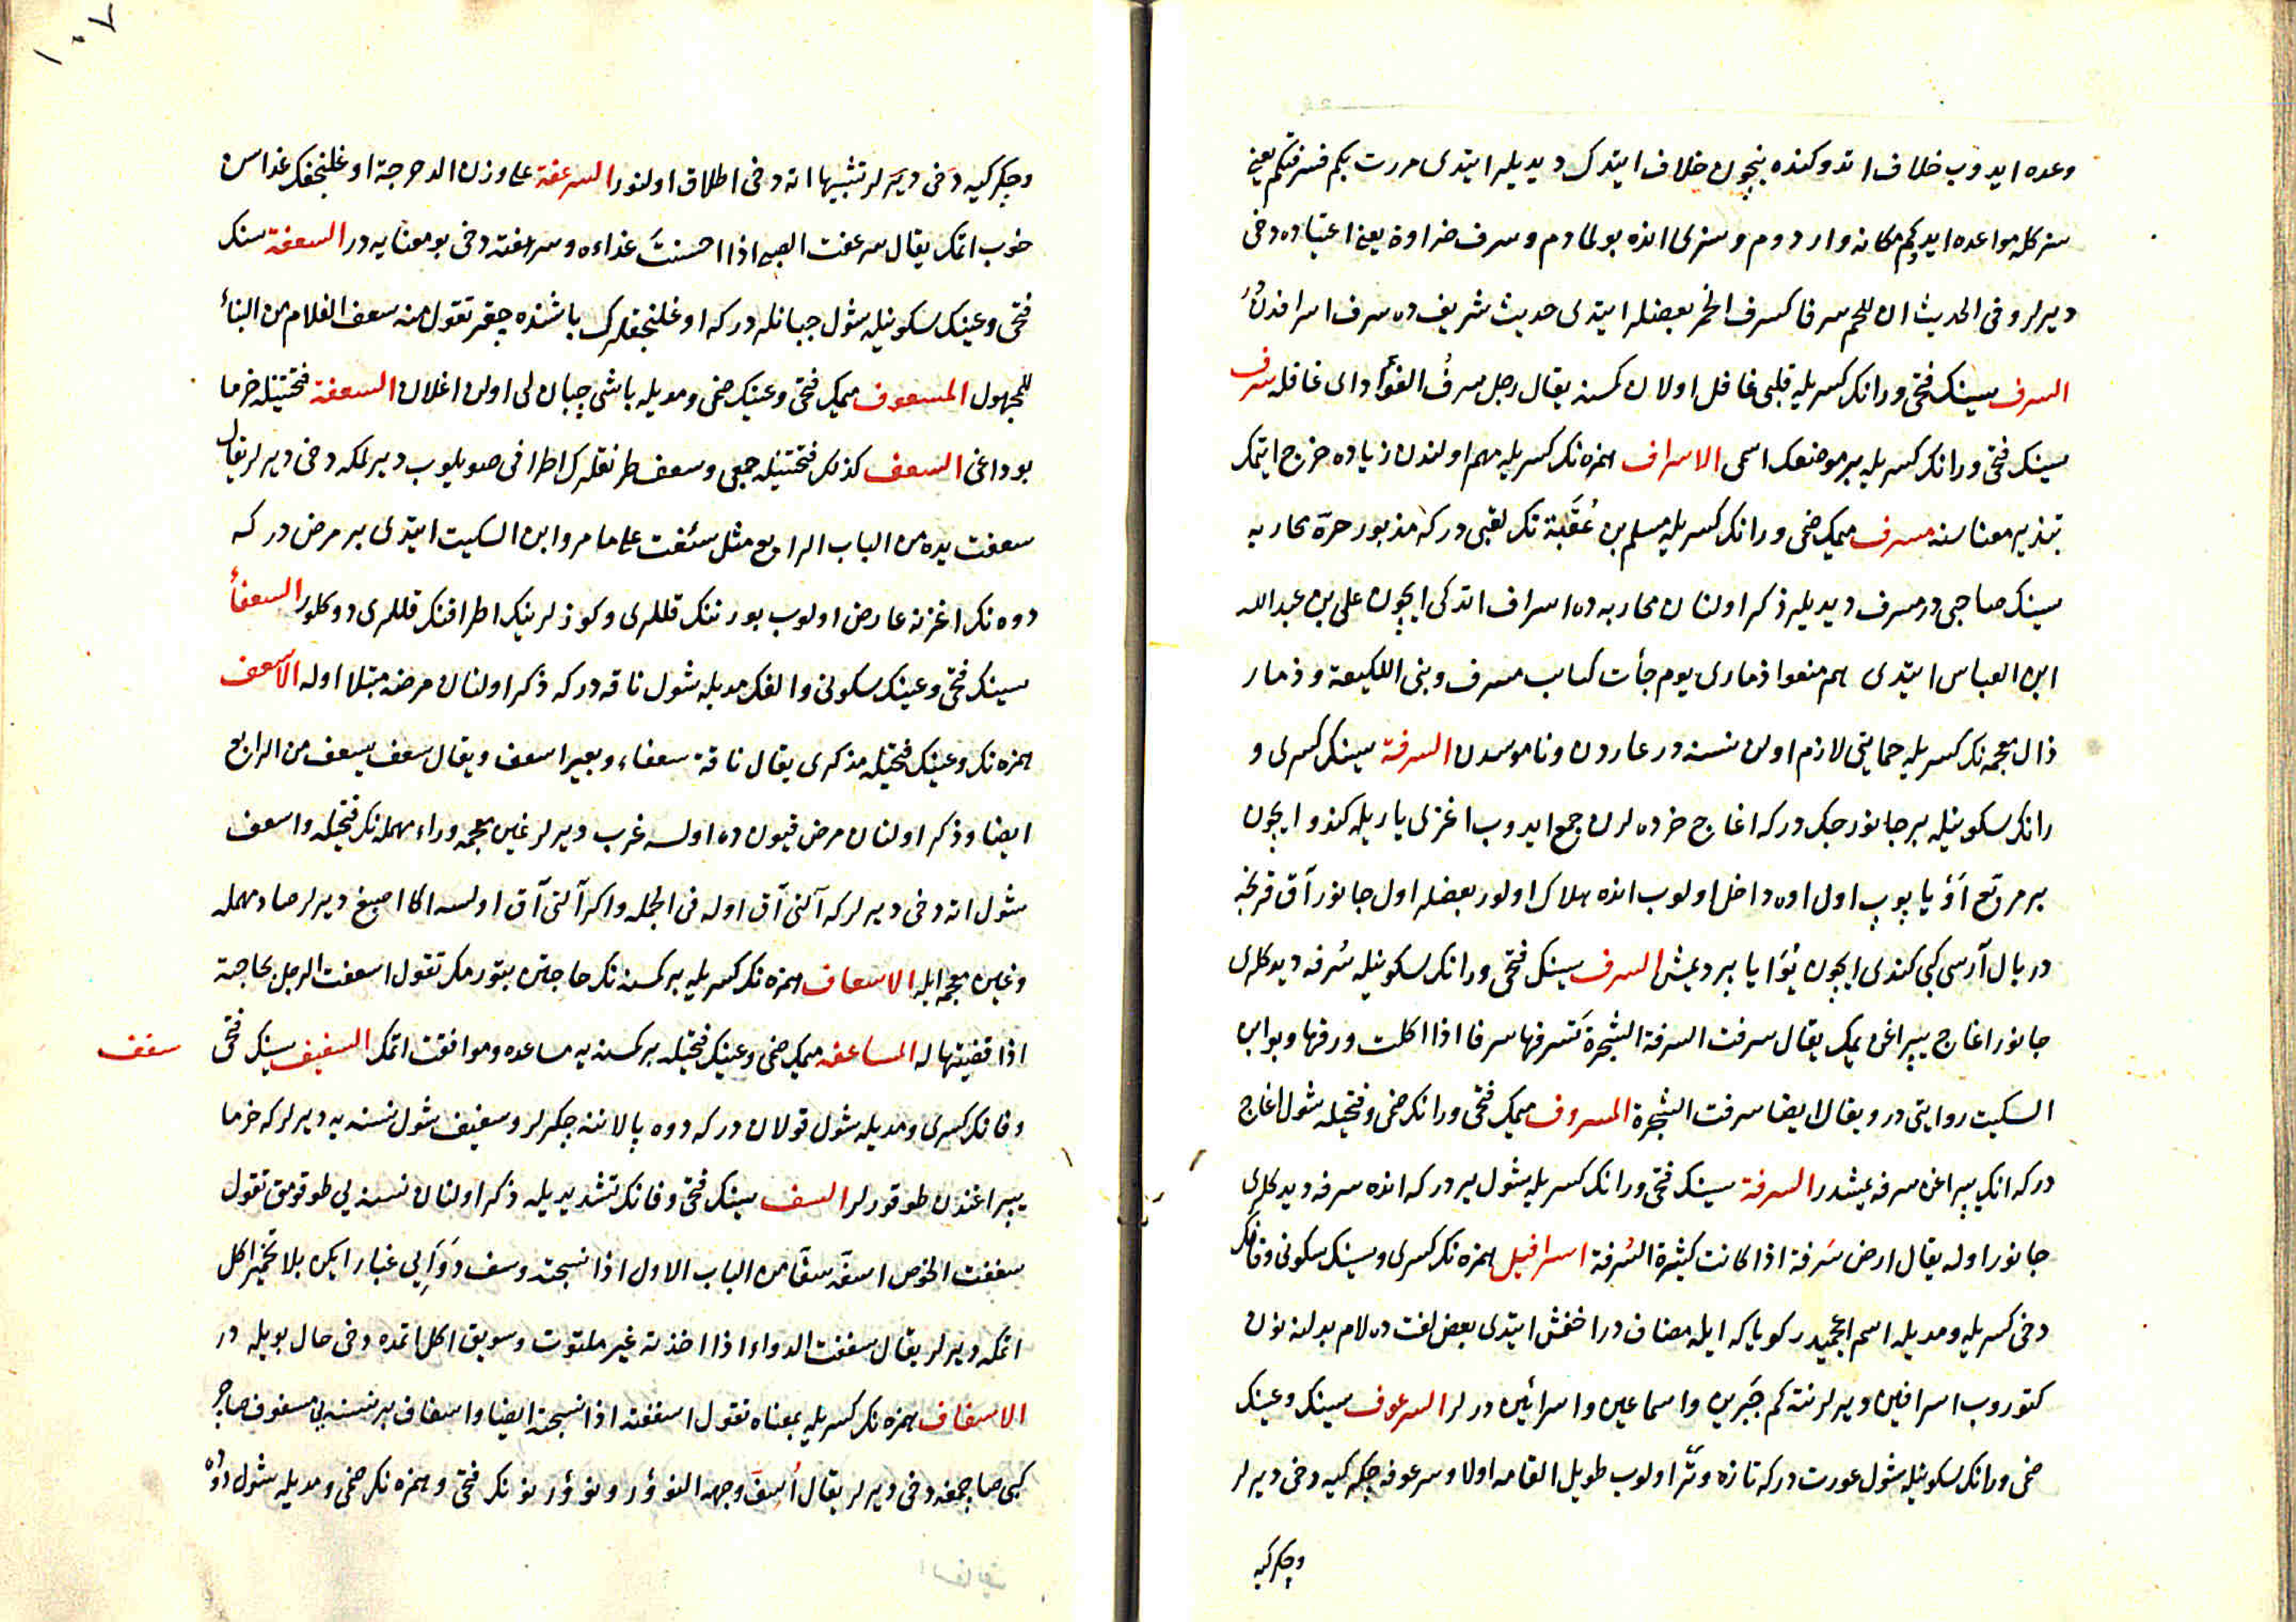 وعده ايدوب خلاف اتدوكنده نيچون خلاف ايتدك ديديلر ايتدى مررت بكم فسرفتكم يعنى
سزكله مواعده ايدوكم مكانه واردوم و سزلى انده بولمادم و سرف ضراوة يعنى اعتياده دخى
ديرلر و فى الحديث ان للحم سرفا كسرف الخمر بعضلر ايتدى حديث شريف ده سرف اسرافدن
السرف سينك فتحى و رانك كسريله قلبى غافل اولان كمسنه يقال رجل سرف الفؤاد اى غافله سرف
سينك فتحى و رانك كسريله بر موضعك اسمى الاسراف همزه نك كسريله مهم اولندن زياده خرج ايتمك
تبذير معناسنه مسرف ميمك ضمى و رانك كسريله مسلم بن عُقبَة نك لقبى در كه مذبور حرة محاربه
سينك صاحبى در مسرف ديديلر ذكر اولنان محاربه ده اسراف اتدكى ايچون على بن عبد الله
ابن العباس ايتدى هم منعوا ذمارى يوم جأت كتايب مسرف و بنى اللكيعة و ذمار
ذال معجمه نك كسريله حمايتى لازم اولن نسنه در عاردن و ناموسدن السرفة سينك كسرى و
رانك سكونيله بر جانورجك در كه اغاج خرده لرن جمع ايدوب اغزى ياريله كندو ايچون
بر مربع اَوْ ياپوب اول اوه داخل اولوب انده هلاك اولور بعضلر اول جانور آق قرنجه
در بال آرسى كبى كندى ايچون يُوَا ياپر ديمش السرف سينك فتحى و رانك سكونيله سُرفه ديدكلرى
جانور اغاج يپراغى يمك يقال سرفت السرفة الشجرة تَسرفها سرفا اذا اكلت ورقها و بو ابن
السكيت روايتى در و يقال ايضا سرفت الشجرة المسروف ميمك فتحى و رانك ضمى و فتحيله شول اغاج
در كه انك يپراغن سرفه يمشدر السرفة سينك فتحى و رانك كسريله شول ير در كه انده سرفه ديدكلرى
جانور اوله يقال ارض سَرفة اذا كانت كثيرة السُرفة اسرافيل همزه نك كسرى و سينك سكونى و فانك
دخى كسريله و مديله اسم اعجميدر كويا كه ايله مضاف در اخفش ايتدى بعض لغت ده لام بدلنه نون
كتوروب اسرافين ديرلر نته كم جَبرين و اسماعين و اسرائين درلر السرعوف سينك و عينك
ضمى و رانك سكونيله شول عورت در كه تازه و تَر اولوب طويل القامه اولا و سرعوفه چكركيه دخى ديرلر
وچكركيه
١٠٧
و چكركيه دخى ديَرلر تشبيها اته دخى اطلاق اولنور السرعفة على وزن الدحرجة اوغلنجغك غداسن
خوب اتمك يقال سرعفت الصبى اذا احسنتَ غذاءه و سرهفته دخى بو معنايه در السعفة سنك
فتحى و عينك سكونيله شول چبانلر در كه اوغلنجغلرك باشنده چقر تقول منه سعف الغلام من البنأ
للمجهول المسعوف ميمك فتحى و عينك ضمى و مديله باشى چبان لى اولن اغلان السعفة فتحتينله خرما
بوداغى السعف كذلك فتحتينله جمعى و سعف طرنقلرك اطرافى صويلوب ديرلكه دخى ديرلر يقال
سعفت يده من الباب الرابع مثل سئفت على ما مر و ابن السكيت ايتدى بر مرض در كه
دوه نك اغزنه عارض اولوب بورننك قللرى و كوذلرينك اطرافنك قللرى دوكلور السعفأ
سينك فتحى و عينك سكونى و الفك مديله شول ناقه در كه ذكر اولنان مرضه مبتلا اوله الاسعف
همزه نك و عينك فتحيله مذكرى يقال ناقة سعفاء و بعير اسعف و يقال سعف يسعف من الرابع
ايضا و ذكر اولنان مرض قيون ده اولسه غرب ديرلر غين معجمه و راء مهمله نك فتحيله و اسعف
شول اته دخى ديرلر كه آلنى آق اوله فى الجمله و اكر آلنى آق اولسه اكا اصبغ ديرلر صاد مهمله
و غين معجمه ايله الاسعاف همزه نك كسريله بر كمسنه نك حاجتن بتورمك تقول اسعفت الرجل بحاجته
اذا قضيتها له المساعفه ميمك ضمى و عينك فتحيله بر كمسنه يه مساعده و موافقت اتمك السفيف سينك فتحى
سفف
و فانك كسرى و مديله شول قولان در كه دوه پالاننه چكرلر و سفيف شول نسنه يه ديرلر كه خرما
يپراغندن طوقورلر السف سينك فتحى و فانك تشديديله ذكر اولنان نسنه يى طوقومق تقول
سففت الخوص اسفه سفّا من الباب الاول اذا نسجته و سف دَوَاَيى غبار ايكن بلا تخمير اكل
اتمكه ديرلر يقال سففت الدواء اذا اخذته غير ملتوت و سويق اكل اتمده دخى حال بويله در
الاسفاف همزه نك كسريله بمعناه تقول اسففته اذا نسجته ايضا و اسفاف بر نسنه يى مسفوف صاچر
كبى صاچمغه دخى ديرلر يقال اُسِفَّ وجهه النؤور و نؤور نونك فتحى و همزه نك ضمى و مديله شول